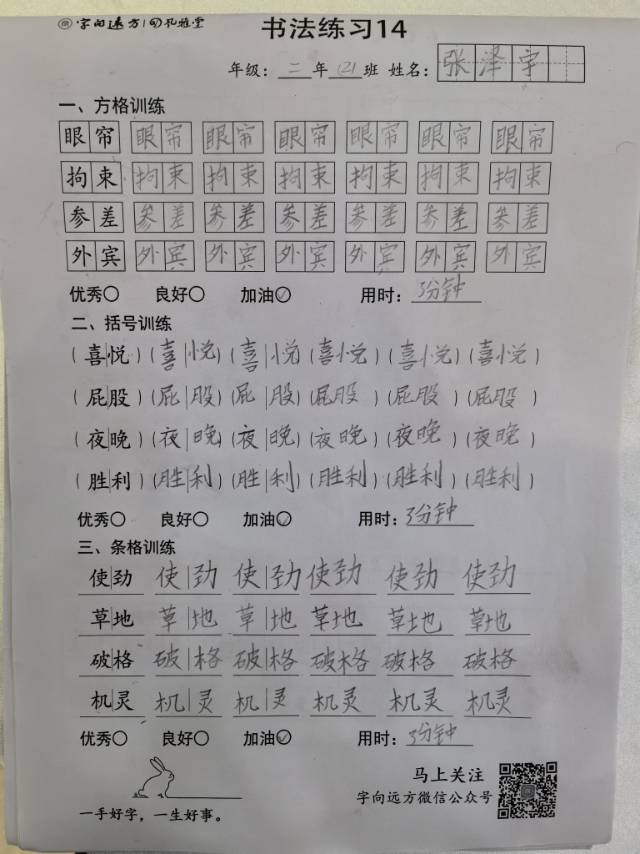 字向远方
书法练习14
年级：二年(2)班 姓名：张泽宇
一、方格训练
眼帘 眼帘 眼帘 眼帘 眼帘 眼帘 眼帘
拘束 拘束 拘束 拘束 拘束 拘束 拘束
参差 参差 参差 参差 参差 参差 参差
外宾 外宾 外宾 外宾 外宾 外宾 外宾
优秀○ 良好○ 加油○ 用时：3分钟
二、括号训练
（喜悦）（喜悦）（喜悦）（喜悦）（喜悦）（喜悦）
（屁股）（屁股）（屁股）（屁股）（屁股）（屁股）
（夜晚）（夜晚）（夜晚）（夜晚）（夜晚）（夜晚）
（胜利）（胜利）（胜利）（胜利）（胜利）（胜利）
优秀○ 良好○ 加油○ 用时：3分钟
三、条格训练
使劲 使劲 使劲 使劲 使劲 使劲
草地 草地 草地 草地 草地 草地
破格 破格 破格 破格 破格 破格
机灵 机灵 机灵 机灵 机灵 机灵
优秀○ 良好○ 加油○ 用时：3分钟
马上关注
字向远方微信公众号
一手好字，一生好事。